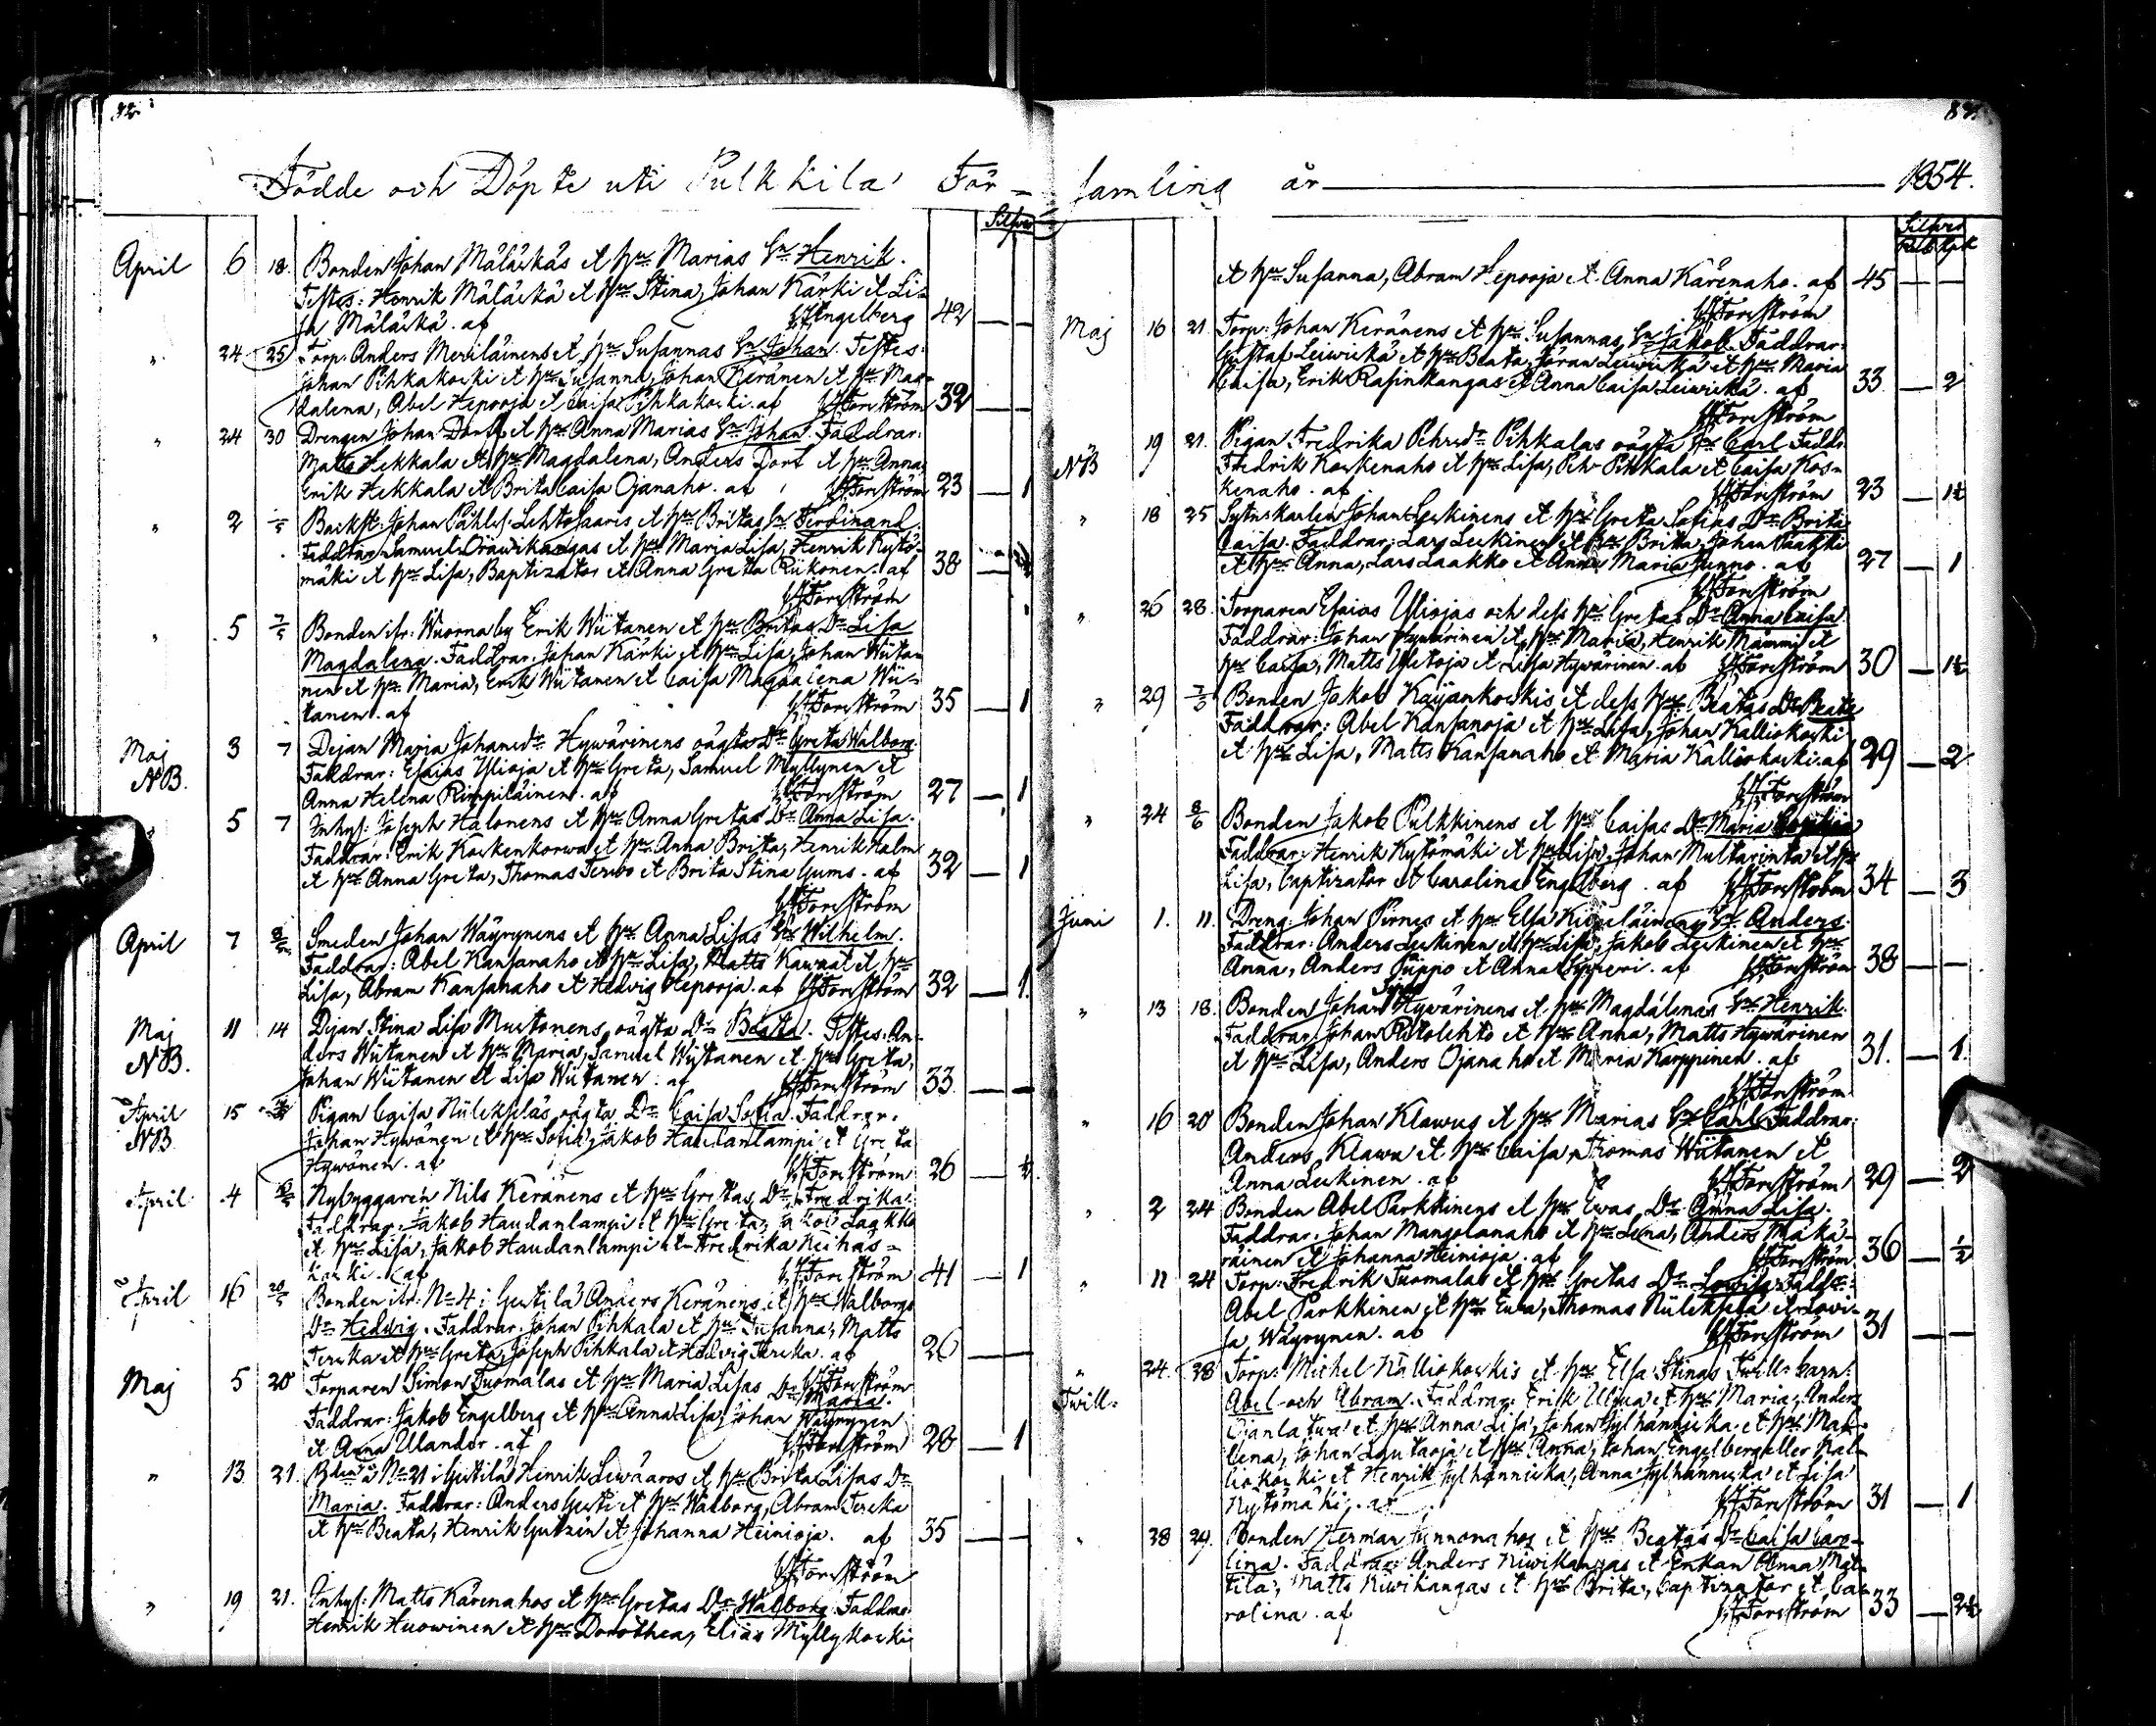 Födde och Döpte uti Pulkkila För-
Silfver
April 6 18. Bonden Johan Mäläskäs et hru Marias Sn Henrik.
Testes: Henrik Mäläskä et hru Stina, Johan Kärki et Li-
sa Mäläskä. af Engelberg 42 — —
" 24 25 Torp. Anders Meriläinens et hru Susannas Sn Johan. Testes:
Johan Pihkakoski et hru Susanna, Johan Keränen et hru Mag-
dalena, Abel Hepooja et Caisa Pihkakoski. af Forsström 32 — —
" 24 30 Drengen Johan et hru Anna Marias Sn Johan. Faddrar:
Matts Hekkala et hru Magdalena, Anders et hru Anna,
Erik Hekkala et Brita Caisa Ojanaho. af Forsström 23 — 1
" 2 Johan Lehtosaaris et hru Britas Sn Ferdinand.
Faddrar Samuel Orawikangas et hru Maria Lisa, Henrik Kytö-
mäki et hru Lisa, Baptizator et Anna Greta Riikonen. af 38 —
Forsström
" 5 7/5 Bonden ifr: Wuorna by Erik Wiitanen et hru Britas Dr Lisa
Magdalena. Faddrar. Johan Kärki et hru Lisa, Johan Wiita-
nen et hru Maria, Erik Wiitanen et Caisa Magdalena Wii-
tanen. af Forsström 35 — 1
Maj 3 7 Pigan Maria Johansdr Hywärinens oägta Dr Greta Walborg.
NB. Faddrar: Esaias Ylioja et hru Greta, Samuel Myllynen et
Anna Helena Rimpiläinen. af Forsström 27 — 1
" 5 7 Inhys: Joseph Halonens et hru Anna Gretas Dr Anna Lisa.
Faddrar: Erik Koskenkorwa et hru Anna Brita, Henrik Halm
et hru Anna Greta, Thomas Terwo et Brita Stina Gums. af 32 — 1
Forsström
April 7 8/5 Smeden Johan Wäyrynens et hru Anna Lisas Sn Wilhelm.
Faddrar: Abel Kansanaho et hru Lisa, Matts et hru
Lisa, Abram Kansanaho et Hedvig Hepooja. af Forsström 32 — 1.
Maj 11 14 Pigan Stina Lisa Mustonens oägta Dr Beata. Testes: An-
NB. ders Wiitanen et hru Maria, Samuel Wiitanen et hru Greta,
Johan Wiitanen et Lisa Wiitanen. af Forsström 33 — —
April 15 Pigan Caisa oägta Dr Caisa Sofia. Faddrar.
NB. Johan Hywönen et hru Sofia, Jakob Haudanlampi et Greta
Hywönen. af Forsström 26 — ½
April 4 Nybyggaren Nils Keränens et hru Gretas Dr Fredrika.
Faddrar: Jakob Haudanlampi et hru Greta, Jakob Laakko
et hru Lisa, Jakob Haudanlampi et Fredrika Keihäs-
koski. af Forsström 41 — 1
April 16 20/5 Bonden ifr: No 4 i Gertilä Anders Keränens et hru Walborgs
Dr Hedwig. Faddrar. Johan Pihkala et hru Susanna, Matts
Terska et hru Greta, Joseph Pihkala et Hedvig Terska. af 26 —
Maj 5 20 Torparen Simon Tuomalas et hru Maria Lisas Forsström
Dr Maria.
Faddrar: Jakob Engelberg et hru Anna Lisa, Johan Wäyrynen
et Anna Ulander. af Forsström 28 — 1
" 13 21. No 21 i Gertilä Henrik et hru Brita Lisas Dr
Maria. Faddrar: Anders Gerti et hru Walborg, Abram Terska
et hru Beata, Henrik et Johanna Heinioja. af 35 — —
Forsström
" 19 21. Inhys: Matts Kärenahos et hru Gretas Dr Walborg. Faddrar
Henrik Huowinen et hru Dorothea, Elias Myllykoski
samling år 1854.
Silfver
Rub. Kpk
et hru Susanna, Abram Hepooja et Anna Kärenaho. af 45 — —
Forsström
Maj 16 21. Torp. Johan Keränens et hru Susannas Sn Jakob. Faddrar:
Gustaf Leiwiskä et hru Beata, Göran Leiwiskä et hru Maria
Caisa, Erik Rasinkangas et Anna Caisa Leiwiskä. af 33 — 2
Forsström
" 19 21. Pigan Fredrika Pehrsdr Pihkalas oägta Sn Carl. Faddr:
NB Fredrik Koskenaho et hru Lisa, Pehr Pihkala et Caisa Kos-
kenaho. af Forsström 23 — 1½
" 18 25 Johan Leskinens et hru Greta Sofias Dr Brita
Caisa. Faddrar: Lars Leskinen et hru Brita, Johan
et hru Anna, Lars Laakko et Anna Maria Junno. af 27 — 1
Forsström
" 26 28. Torparen Esaias Yliojas och dess hru Gretas Dr Anna Caisa.
Faddrar: Johan Hywärinen et hru Maria, Henrik Mämmi et
hru Caisa, Matts et Lisa Hywärinen. af Forsström 30 — 1½
" 29 Bonden Jakob et dess hru Beatas Dr Beata
Faddrar: Abel Kansanoja et hru Lisa, Johan Kalliokoski
et hru Lisa, Matts Kansanaho et Maria Kalliokoski. af 29 — 2
Forsström
" 24 8/6 Bonden Jakob Pulkkinens et hru Caisas Dr Maria
Faddrar: Henrik Kytömäki et hru Lisa, Johan Multarinta et hru
Lisa, Baptizator et Carolina Engelberg. af Forsström 34 — 3
Juni 1. 11. Dreng: Johan Pirnes et hru Elsa Sn Anders.
Faddrar: Anders Leskinen et hru Lisa, Jakob Leskinen et hru
Anna, Anders Piippo et Anna. af Forsström 38 — —
" 13 18. Bonden Johan Hywärinens et hru Magdalenas Sn Henrik.
Faddrar: Johan Ristolehto et hru Anna, Matts Hywärinen
et hru Lisa, Anders Ojanaho et Maria Karppinen. af 31. — 1.
Forsström
" 16 20 Bonden Johan Klawus et hru Marias Sn Carl. Faddrar:
Anders Klawu et hru Caisa, Thomas Wiitanen et
Anna Leskinen. af Forsström 29 — 2
" 2 24 Bonden Abel Parkkinens et hru Ewas Dr Anna Lisa.
Faddrar: Johan Mangolanaho et hru Lena, Anders Makä-
räinen et Johanna Heinioja. af Forsström 36 — ½
" 11 24 Torp: Fredrik Tuomalas et hru Gretas Dr Lovisa. Faddr:
Abel Parkkinen et hru Ewa, Thomas et Lovi-
sa Wäyrynen. af Forsström 31 — —
" 24. 28 Torp: Michel Kalliokoskis et hru Elsa Stinas Twill: barn:
Twill: Abel och Abram. Faddrar: Erik et hru Maria, Anders
Ojanlatwa et hru Anna Lisa, Johan Jylhänniska et hru Mat-
lena, Johan Lautaoja et hru Anna, Johan Engelberg eller Kal-
liokoski et Henrik Jylhänniska, Anna Jylhänniska et Lisa
Kytömäki. af Forsström 31 — 1
" 28 29. Bonden Herman Junnonahos et hru Beatas Dr Caisa Caro-
lina. Faddrar: Anders Kiwikangas et Enkan Anna Mat-
tila, Matts Kiwikangas et hru Brita, Baptizator et Ca-
rolina. af Forsström 33 — 2½